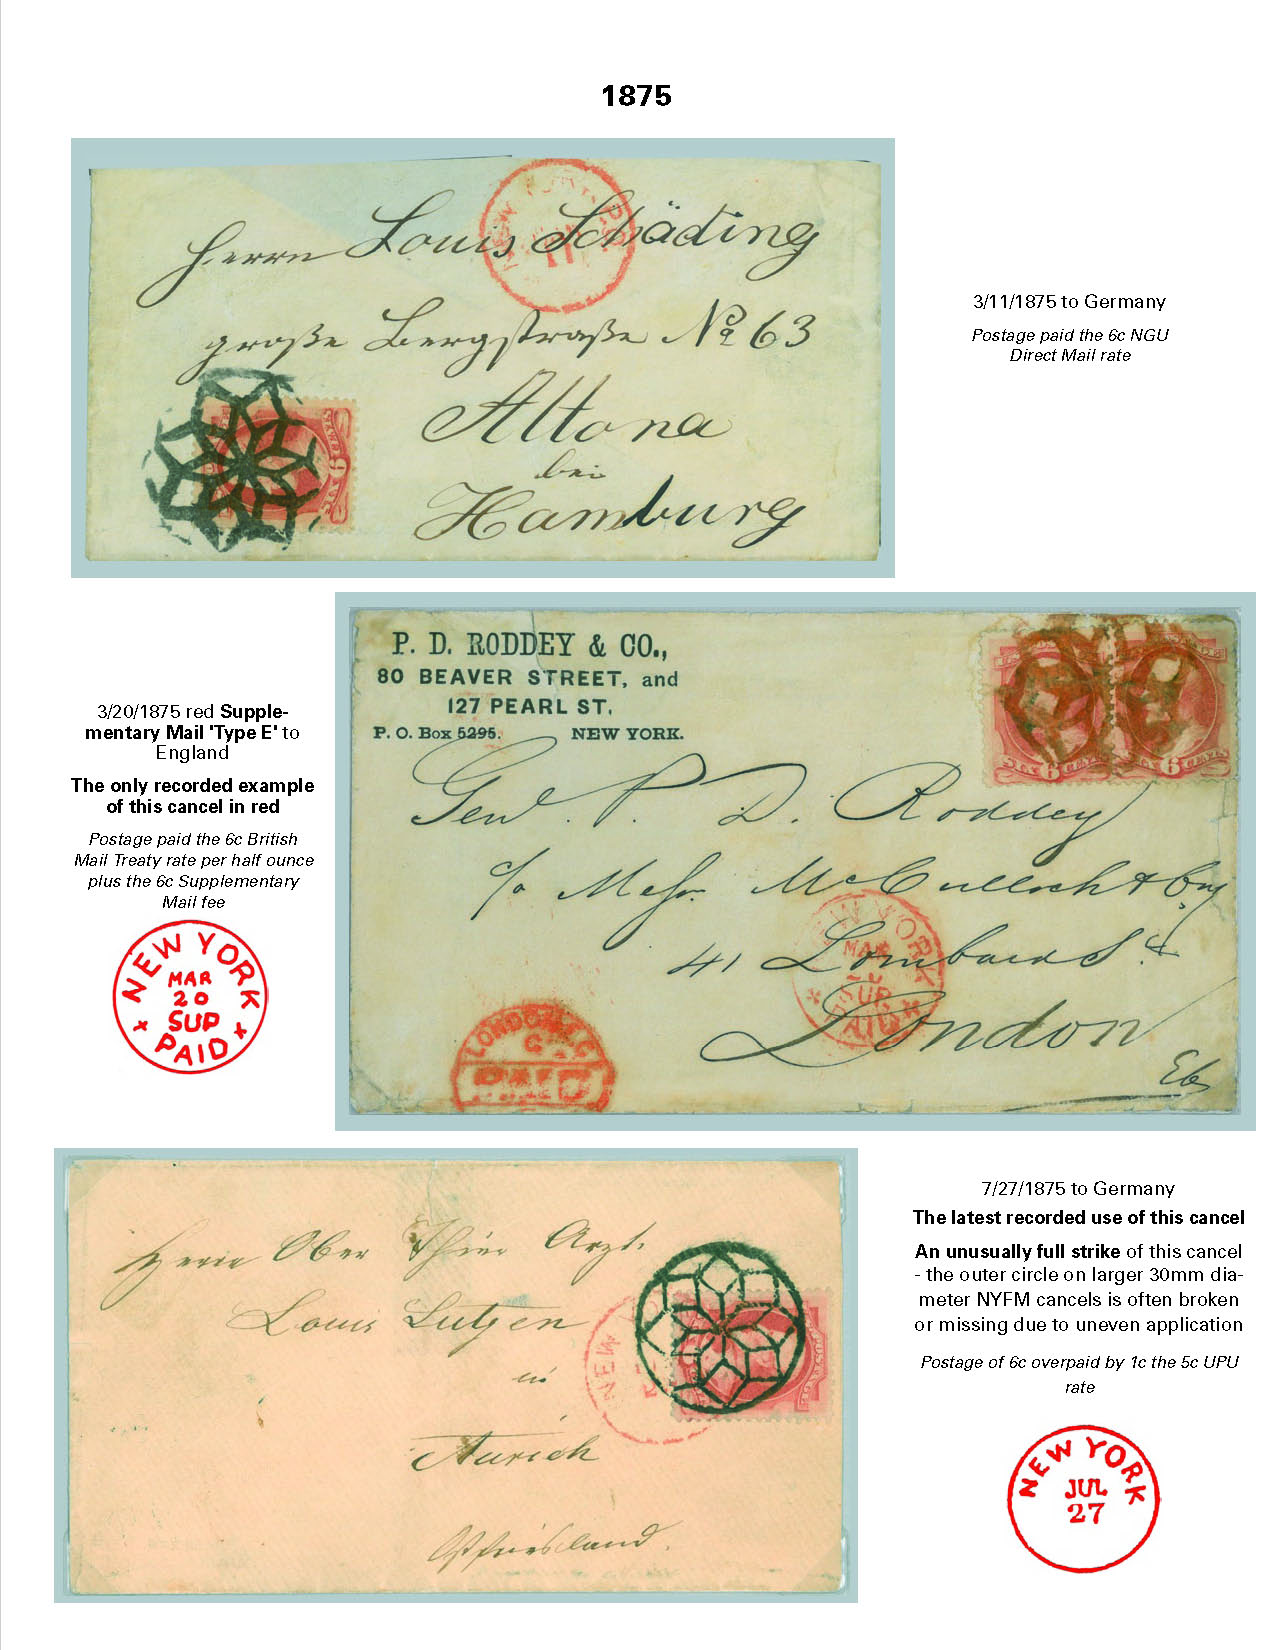 1875
Herrn Louis Schäding
große Bergstraße No 63
Altona
bei
Hamburg
NEW YORK
11
3/11/1875 to Germany
Postage paid the 6c NGU
Direct Mail rate
3/20/1875 red Supple-
mentary Mail 'Type E' to
England
The only recorded example
of this cancel in red
Postage paid the 6c British
Mail Treaty rate per half ounce
plus the 6c Supplementary
Mail fee
NEW YORK
MAR
20
SUP
PAID
P. D. RODDEY & CO.,
80 BEAVER STREET, and
127 PEARL ST.
P. O. Box 5295. NEW YORK.
SIX 6 CENTS
6 CENTS
Genl. P. D. Roddey
c/o Messr McCulloch & Co
41 Lombard St
London
NEW YORK
MAR
20
SUP
PAID
LONDON E.C
PAID
Herrn Ober Thier Arzt
Louis Lutjen
in
Aurich
Ostfriesland.
NEW
7/27/1875 to Germany
The latest recorded use of this cancel
An unusually full strike of this cancel
- the outer circle on larger 30mm dia-
meter NYFM cancels is often broken
or missing due to uneven application
Postage of 6c overpaid by 1c the 5c UPU
rate
NEW YORK
JUL
27